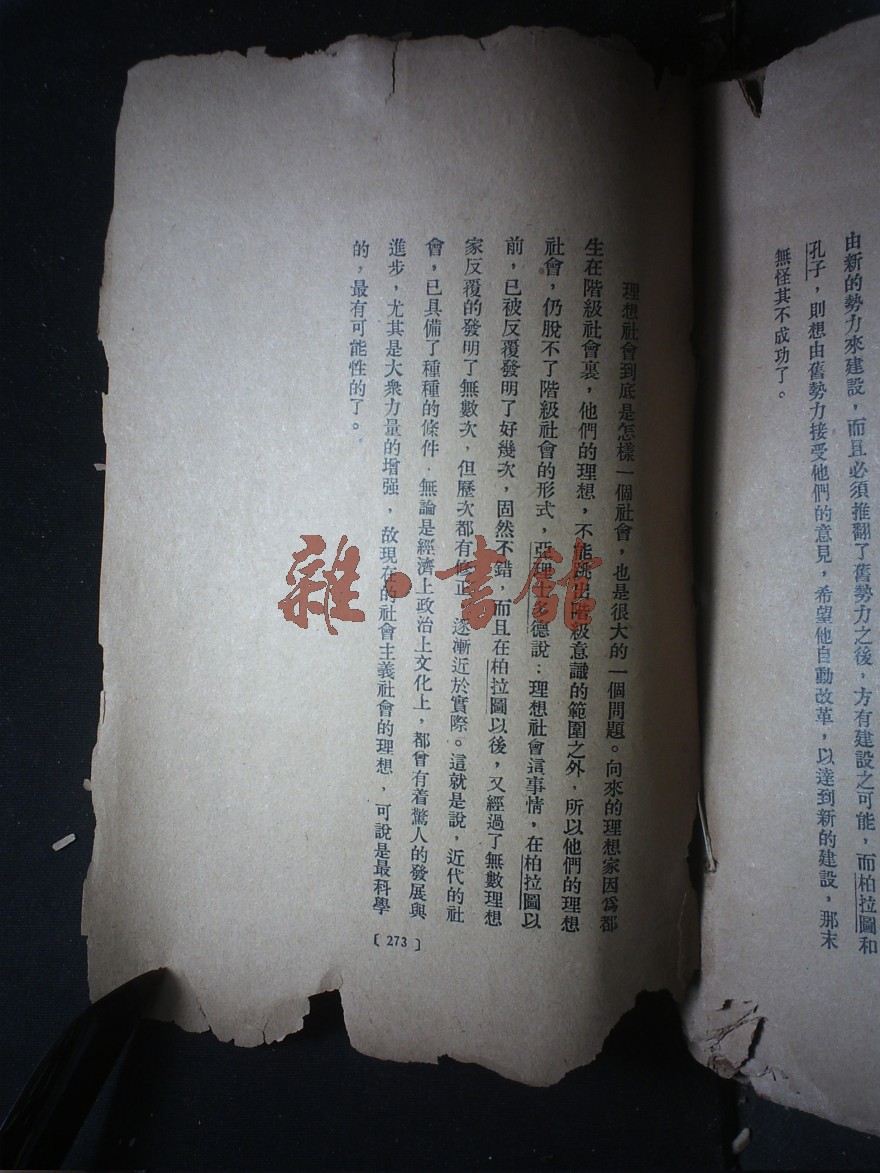 由新的勢力來建設，而且必須推翻了舊勢力之後，方有建設之可能，而柏拉圖和
孔子，則想由舊勢力接受他們的意見，希望他自動改革，以達到新的建設，那末
無怪其不成功了。
理想社會到底是怎樣一個社會，也是很大的一個問題。向來的理想家因爲都
生在階級社會裏，他們的理想，不能跳出階級意識的範圍之外，所以他們的理想
社會，仍脫不了階級社會的形式，亞理士多德說：理想社會這事情，在柏拉圖以
前，已被反覆發明了好幾次，固然不錯，而且在柏拉圖以後，又經過了無數理想
家反覆的發明了無數次，但歷次都有修正，逐漸近於實際。這就是說，近代的社
會，已具備了種種的條件．無論是經濟上政治上文化上，都曾有着驚人的發展與
進步，尤其是大衆力量的增强，故現在的社會主義社會的理想，可說是最科學
的，最有可能性的了。
〔273〕
雜·書館